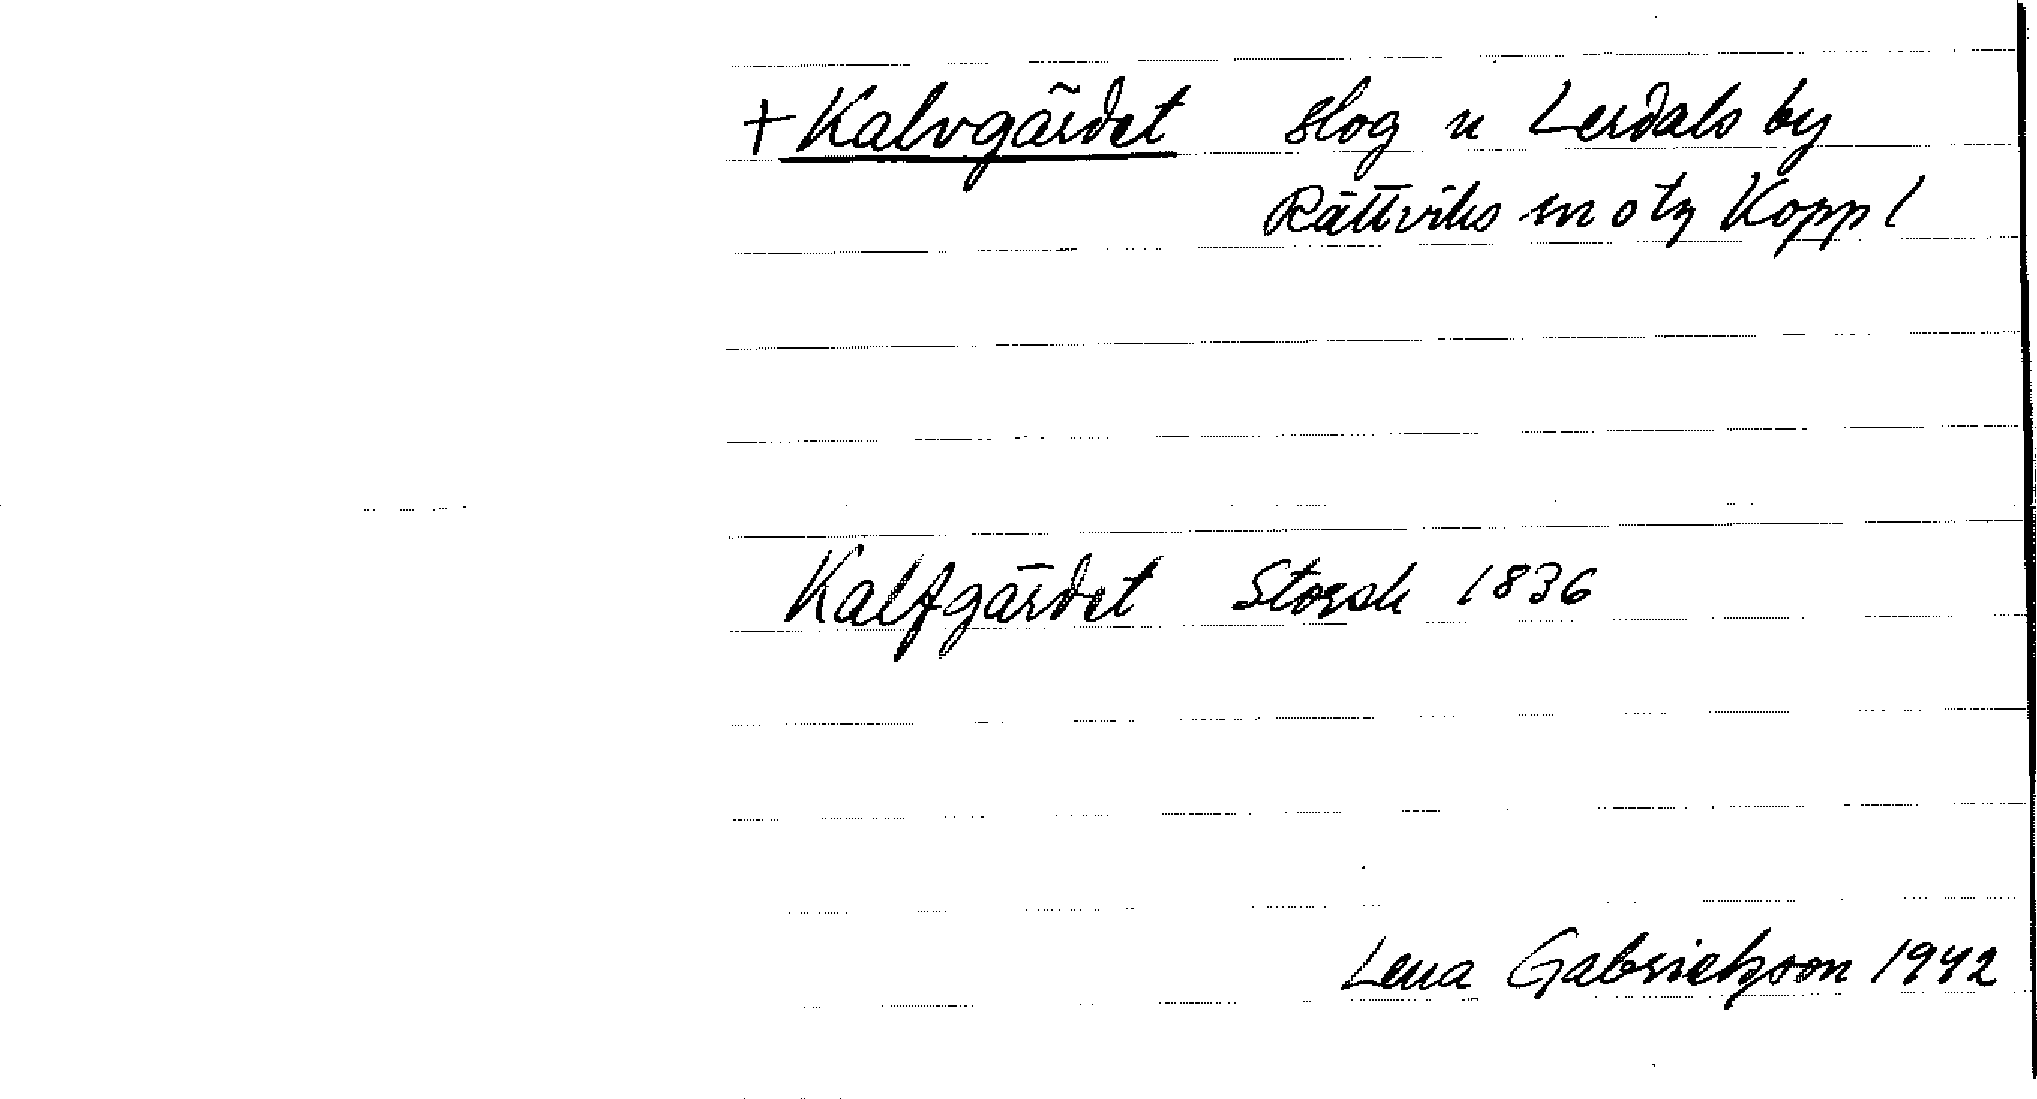 +Kalvgärdet slog u Lerdals by
Rättviks sn o tg Kopp l
Kalfgärdet Storsk 1836
Lena Gabrielsson 1942